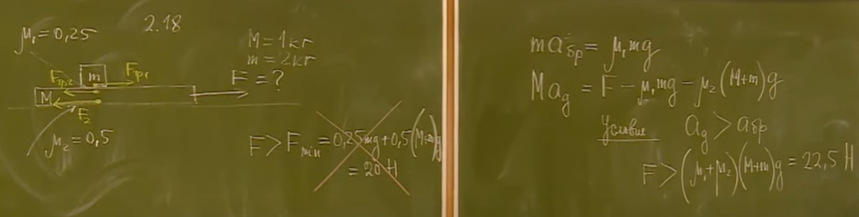 μ₁ = 0,25
2.18
M = 1 кг
m = 2 кг
Fтр2 m Fтр1
F = ?
M
F₂
μ₂ = 0,5
F > Fmin = 0,25mg + 0,5(M+m)g
= 20 Н
maбр = μ₁mg
Maд = F − μ₁mg − μ₂(M+m)g
Условие aд > aбр
F > (μ₁+μ₂)(M+m)g = 22,5 Н